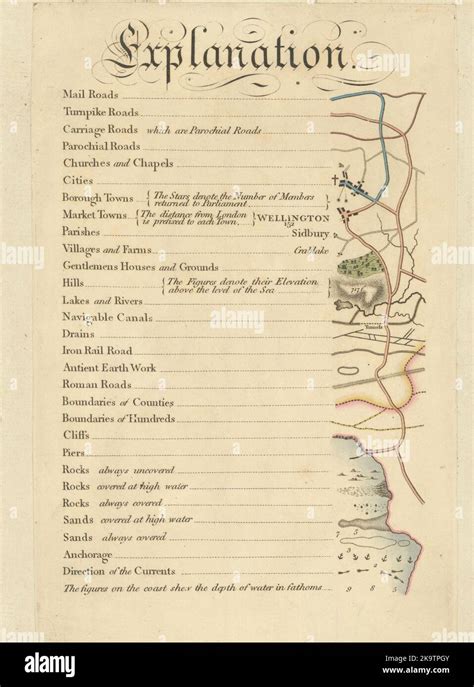 Explanation.
Mail Roads
Turnpike Roads
Carriage Roads which are Parochial Roads
Parochial Roads
Churches and Chapels
Cities
Borough Towns {The Stars denote the Number of Members returned to Parliament.}
Market Towns {The distance from London is prefixed to each Town.} WELLINGTON 152
Parishes Sidbury.
Villages and Farms Crablake
Gentlemens Houses and Grounds
Hills {The Figures denote their Elevation above the level of the Sea
Lakes and Rivers
Navigable Canals
Drains
Iron Rail Road
Antient Earth Work
Roman Roads
Boundaries of Counties
Boundaries of Hundreds
Cliffs
Piers
Rocks always uncovered
Rocks covered at high water
Rocks always covered
Sands covered at high water
Sands always covered
Anchorage
Direction of the Currents
The figures on the coast shew the depth of water in fathoms 9 8 5
alamy
Image ID: 2K9TPGY
www.alamy.com